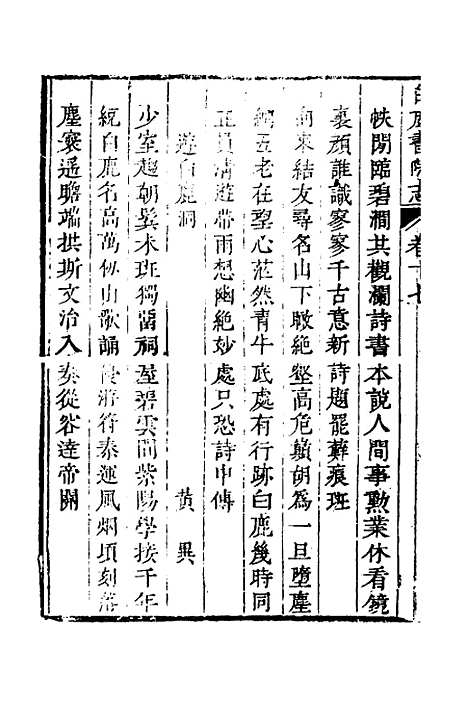 白鹿書院志 卷十七
帙閑臨碧澗其觀瀾詩書本說人間事勳業休看鏡
裏顏誰識寥寥千古意新詩題罷蘚痕班
向來結友尋名山下瞰絕壑高危巔胡為一旦墮塵
網五老在望心茫然青牛底處有行跡白鹿幾時同
正員清遊帶雨想幽絕妙處只恐詩中傳
遊白鹿洞 黄異
少室趨朝鬂未班獨留祠屋碧雲間紫陽學接千年
統白鹿名高萬仞山歌誦 游符泰運風烟頃刻落
塵寰遥瞻端拱斯文治入奏從容達帝關